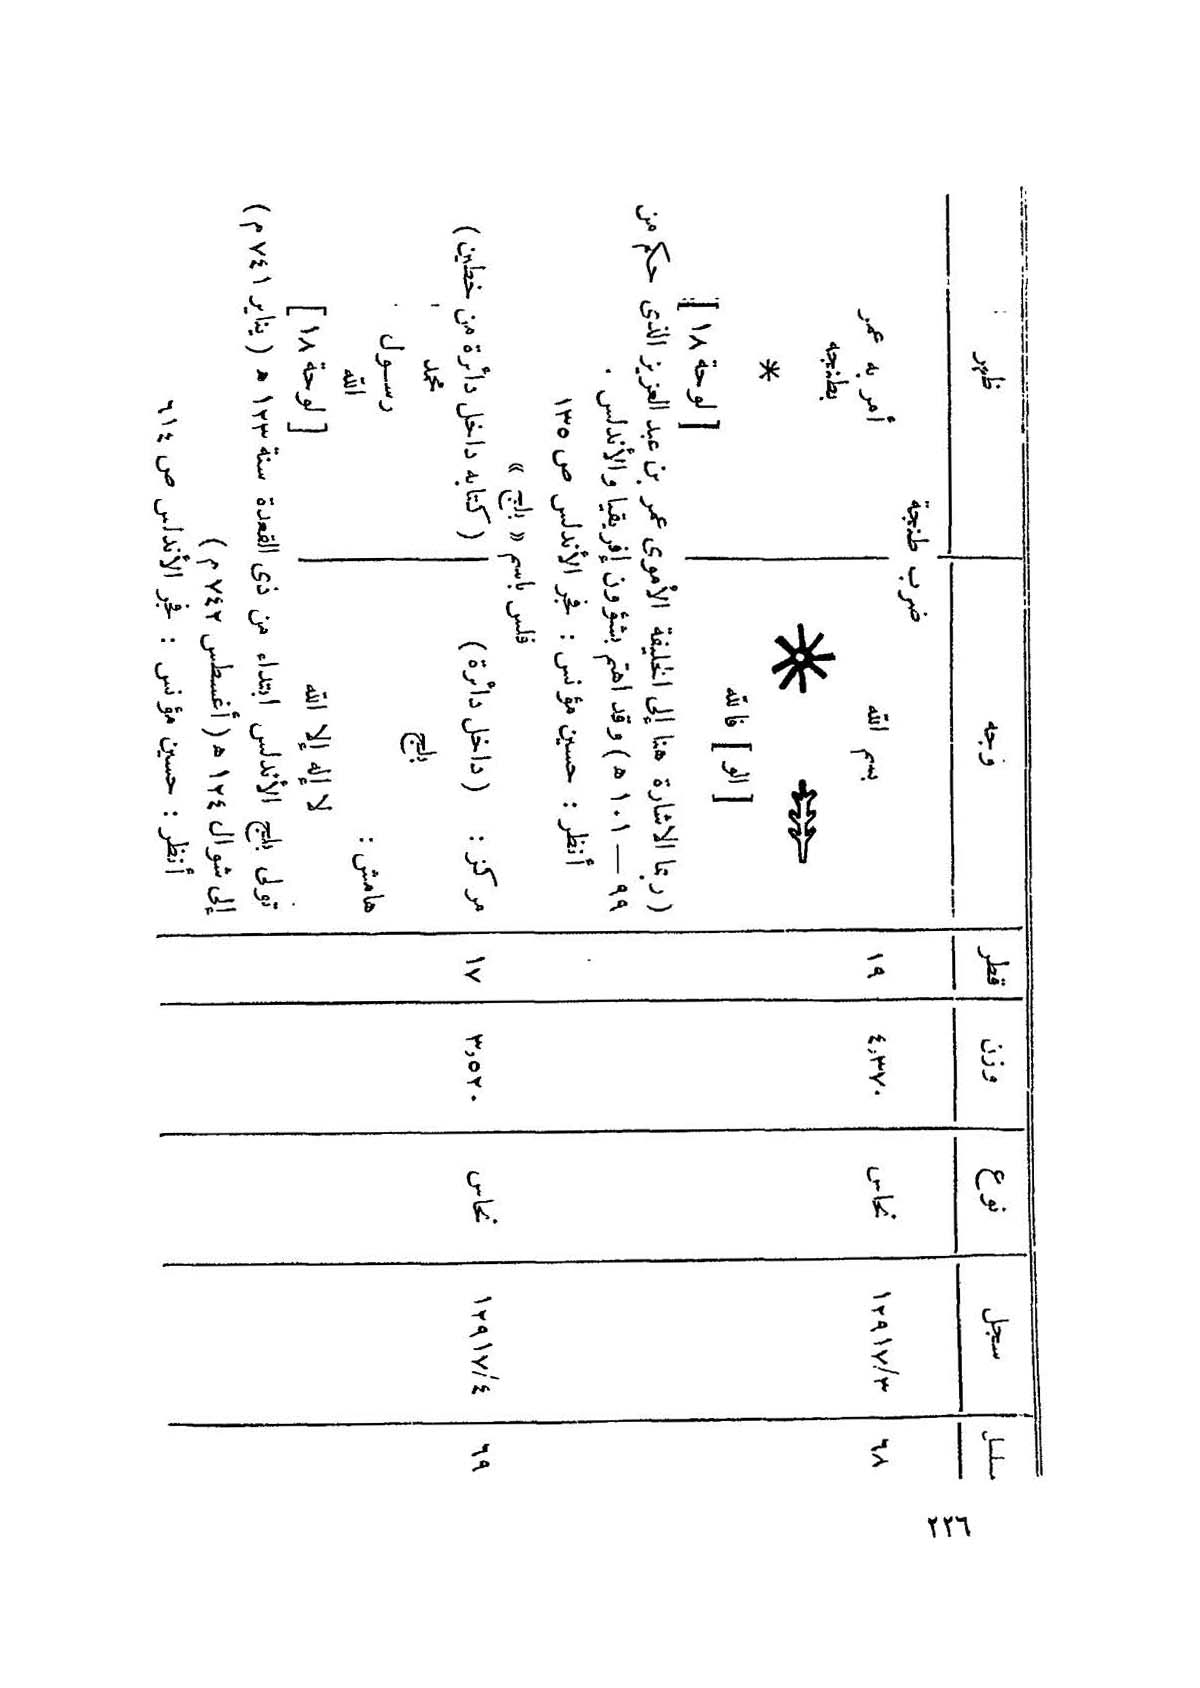 مسلسل سجل نوع وزن قطر وجه ظهر
ضرب طنجة
٦٨ ١٢٩١٧/٣ نحاس ٤,٣٧٠ ١٩ بسم الله أمر به عمر
بطنجه
*
[ الو ] فا لله
[ لوحة ١٨ ]
( ربما الاشارة هنا إلى الخليفة الأموى عمر بن عبد العزيز الذى حكم من
٩٩ — ١٠١ ه ) وقد اهتم بشؤون إفريقيا والأندلس .
أنظر : حسين مؤنس : فجر الأندلس ص ١٣٥
فلس باسم « بلج »
٦٩ ١٢٩١٧/٤ نحاس ٣,٥٢٠ ١٧ مركز : ( داخل دائرة ) ( كتابه داخل دائرة من خطين )
بلج محمد
رسول
هامش : الله
لا إله إلا الله [ لوحة ١٨ ]
تولى بلج الأندلس ابتداء من ذى القعدة سنة ١٢٣ ه ( يناير ٧٤١ م )
إلى شوال ١٢٤ ه ( أغسطس ٧٤٢ م )
أنظر : حسين مؤنس : فجر الأندلس ص ٦١٤
٢٢٦